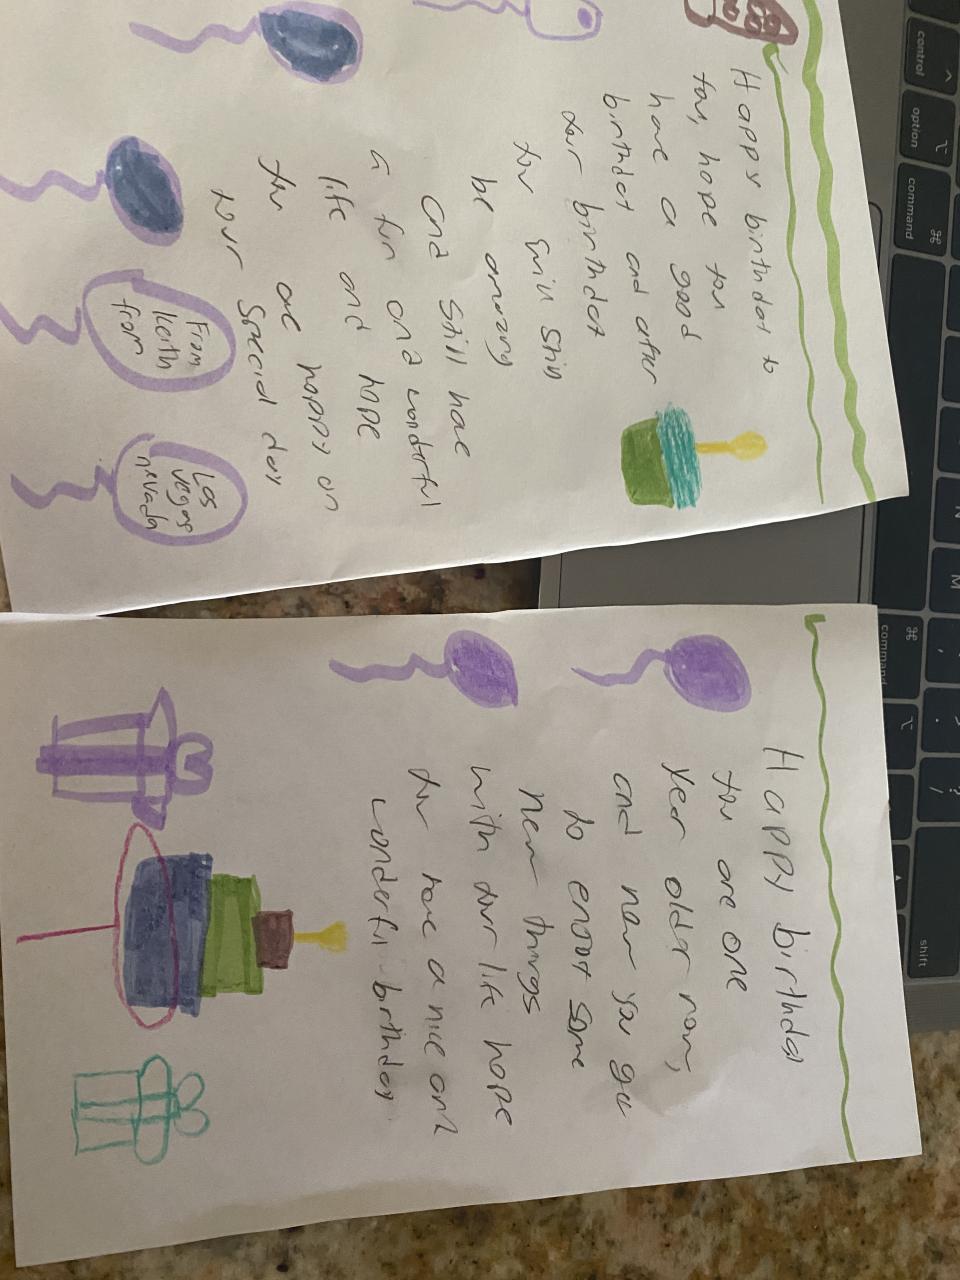 Happy birthdat to
tou, hope tou
have a good
birthdat and after
dour birthdat
tou will still
be amazing
and still have
a fun and wonderful
life and hope
tou are happy on
tour special day
From
Keith
from
Las
vegas
nevada
Happy birthday
tou are one
year older now,
and new you
to enoot some
new things
with dour life hope
dou have a nice and
wonderful birthday
control
option
command
command
shift
N
M